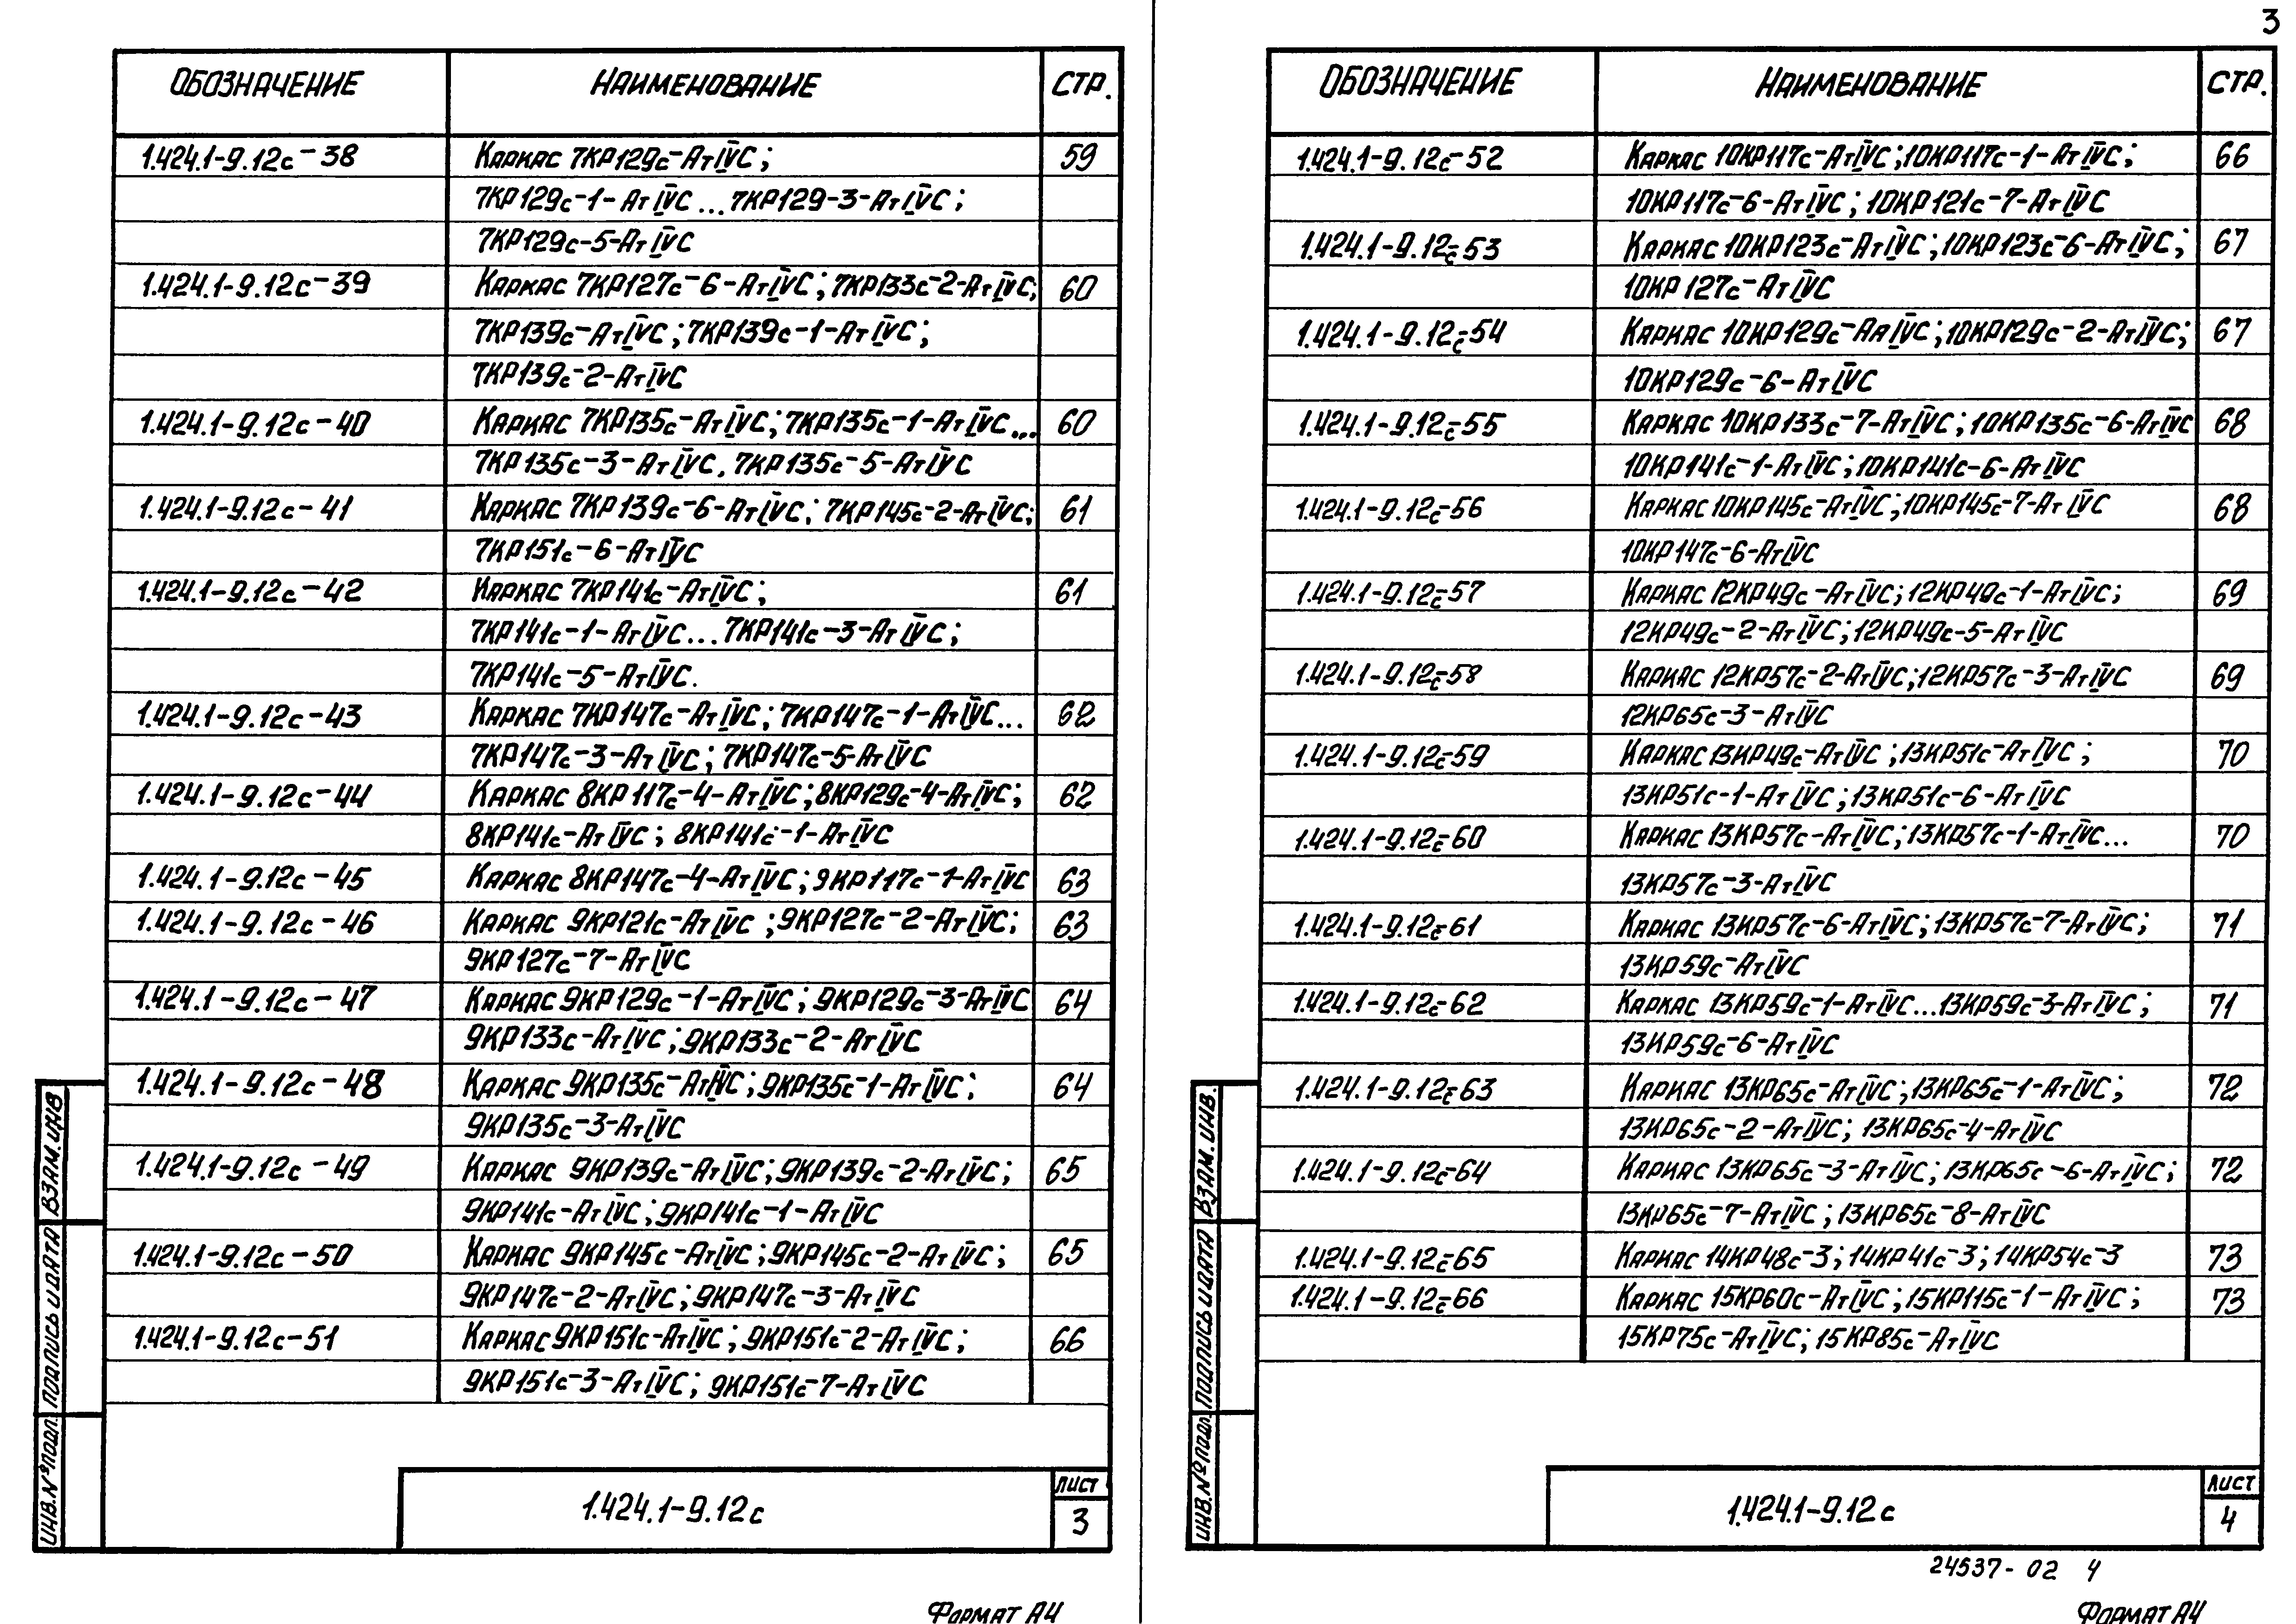 3
ОБОЗНАЧЕНИЕ НАИМЕНОВАНИЕ СТР.
1.424.1-9.12с-38 Каркас 7КР129с-АтIVС; 59
7КР129с-1-АтIVС...7КР129-3-АтIVС;
7КР129с-5-АтIVС
1.424.1-9.12с-39 Каркас 7КР127с-6-АтIVС; 7КР133с-2-АтIVС; 60
7КР139с-АтIVС; 7КР139с-1-АтIVС;
7КР139с-2-АтIVС
1.424.1-9.12с-40 Каркас 7КР135с-АтIVС; 7КР135с-1-АтIVС... 60
7КР135с-3-АтIVС, 7КР135с-5-АтIVС
1.424.1-9.12с-41 Каркас 7КР139с-6-АтIVС; 7КР145с-2-АтIVС; 61
7КР151с-6-АтIVС
1.424.1-9.12с-42 Каркас 7КР141с-АтIVС; 61
7КР141с-1-АтIVС...7КР141с-3-АтIVС;
7КР141с-5-АтIVС.
1.424.1-9.12с-43 Каркас 7КР147с-АтIVС; 7КР147с-1-АтIVС... 62
7КР147с-3-АтIVС; 7КР147с-5-АтIVС
1.424.1-9.12с-44 Каркас 8КР117с-4-АтIVС; 8КР129с-4-АтIVС; 62
8КР141с-АтIVС; 8КР141с-1-АтIVС
1.424.1-9.12с-45 Каркас 8КР147с-4-АтIVС; 9КР117с-1-АтIVС 63
1.424.1-9.12с-46 Каркас 9КР121с-АтIVС; 9КР127с-2-АтIVС; 63
9КР127с-7-АтIVС
1.424.1-9.12с-47 Каркас 9КР129с-1-АтIVС; 9КР129с-3-АтIVС 64
9КР133с-АтIVС; 9КР133с-2-АтIVС
1.424.1-9.12с-48 Каркас 9КР135с-АтIVС; 9КР135с-1-АтIVС; 64
9КР135с-3-АтIVС
1.424.1-9.12с-49 Каркас 9КР139с-АтIVС; 9КР139с-2-АтIVС; 65
9КР141с-АтIVС; 9КР141с-1-АтIVС
1.424.1-9.12с-50 Каркас 9КР145с-АтIVС; 9КР145с-2-АтIVС; 65
9КР147с-2-АтIVС; 9КР147с-3-АтIVС
1.424.1-9.12с-51 Каркас 9КР151с-АтIVС; 9КР151с-2-АтIVС; 66
9КР151с-3-АтIVС; 9КР151с-7-АтIVС
ВЗАМ. ИНВ
ПОДПИСЬ И ДАТА
ИНВ. № ПОДЛ.
1.424.1-9.12с
ЛИСТ
3
ФОРМАТ А4
ОБОЗНАЧЕНИЕ НАИМЕНОВАНИЕ СТР.
1.424.1-9.12с-52 Каркас 10КР117с-АтIVС; 10КР117с-1-АтIVС; 66
10КР117с-6-АтIVС; 10КР121с-7-АтIVС
1.424.1-9.12с-53 Каркас 10КР123с-АтIVС; 10КР123с-6-АтIVС; 67
10КР127с-АтIVС
1.424.1-9.12с-54 Каркас 10КР129с-АяIVС; 10КР129с-2-АтIVС; 67
10КР129с-6-АтIVС
1.424.1-9.12с-55 Каркас 10КР133с-7-АтIVС; 10КР135с-6-АтIVС 68
10КР141с-1-АтIVС; 10КР141с-6-АтIVС
1.424.1-9.12с-56 Каркас 10КР145с-АтIVС; 10КР145с-7-АтIVС 68
10КР147с-6-АтIVС
1.424.1-9.12с-57 Каркас 12КР49с-АтIVС; 12КР49с-1-АтIVС; 69
12КР49с-2-АтIVС; 12КР49с-5-АтIVС
1.424.1-9.12с-58 Каркас 12КР57с-2-АтIVС; 12КР57с-3-АтIVС 69
12КР65с-3-АтIVС
1.424.1-9.12с-59 Каркас 13КР49с-АтIVС; 13КР51с-АтIVС; 70
13КР51с-1-АтIVС; 13КР51с-6-АтIVС
1.424.1-9.12с-60 Каркас 13КР57с-АтIVС; 13КР57с-1-АтIVС... 70
13КР57с-3-АтIVС
1.424.1-9.12с-61 Каркас 13КР57с-6-АтIVС; 13КР57с-7-АтIVС; 71
13КР59с-АтIVС
1.424.1-9.12с-62 Каркас 13КР59с-1-АтIVС...13КР59с-3-АтIVС; 71
13КР59с-6-АтIVС
1.424.1-9.12с-63 Каркас 13КР65с-АтIVС; 13КР65с-1-АтIVС; 72
13КР65с-2-АтIVС; 13КР65с-4-АтIVС
1.424.1-9.12с-64 Каркас 13КР65с-3-АтIVС; 13КР65с-6-АтIVС; 72
13КР65с-7-АтIVС; 13КР65с-8-АтIVС
1.424.1-9.12с-65 Каркас 14КР48с-3; 14КР41с-3; 14КР54с-3 73
1.424.1-9.12с-66 Каркас 15КР60с-АтIVС; 15КР115с-1-АтIVС; 73
15КР75с-АтIVС; 15КР85с-АтIVС
ВЗАМ. ИНВ.
ПОДПИСЬ И ДАТА
ИНВ. № ПОДЛ.
1.424.1-9.12с
ЛИСТ
4
24537-02 4
ФОРМАТ А4